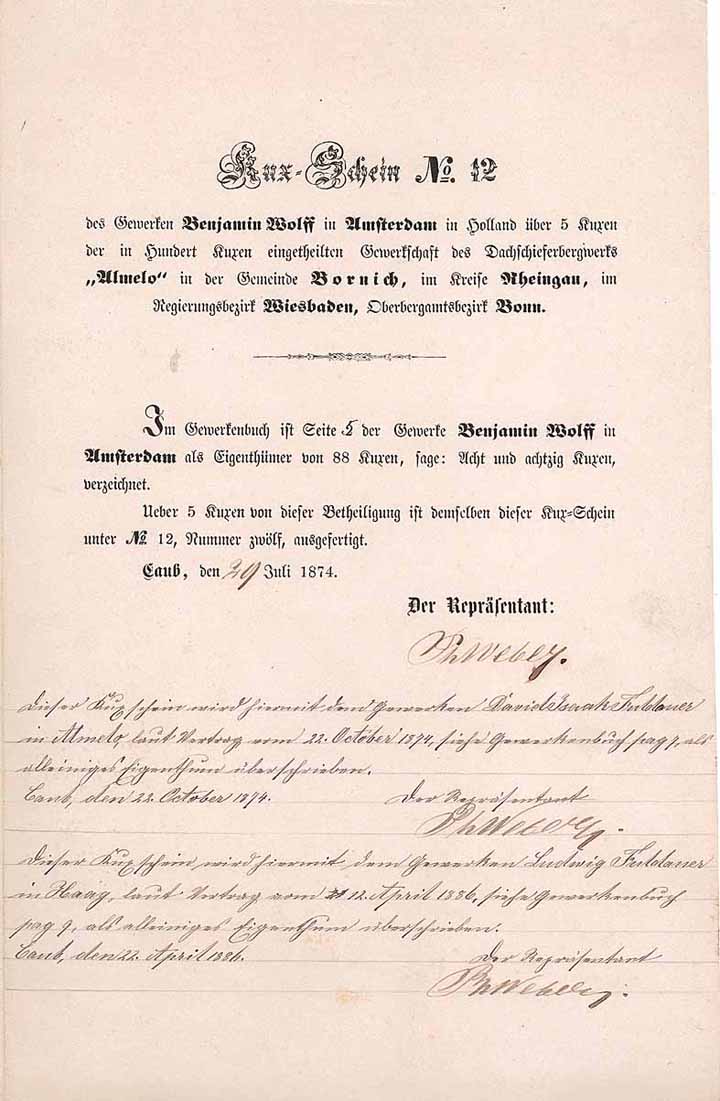 Kux-Schein No. 12
des Gewerken Benjamin Wolff in Amsterdam in Holland über 5 Kuxen
der in Hundert Kuxen eingetheilten Gewerkschaft des Dachschieferbergwerks
„Almelo“ in der Gemeinde Bornich, im Kreise Rheingau, im
Regierungsbezirk Wiesbaden, Oberbergamtsbezirk Bonn.
Im Gewerkenbuch ist Seite 5 der Gewerke Benjamin Wolff in
Amsterdam als Eigenthümer von 88 Kuxen, sage: Acht und achtzig Kuxen,
verzeichnet.
Ueber 5 Kuxen von dieser Betheiligung ist demselben dieser Kux-Schein
unter No 12, Nummer zwölf, ausgefertigt.
Caub, den 29 Juli 1874.
Der Repräsentant:
PhWeber.
Dieser Kuxschein wird hiermit dem Gewerken David Isaak Fuldauer
in Almelo, laut Vertrag vom 22. October 1874, siehe Gewerkenbuch pag 7, als
alleiniges Eigenthum überschrieben.
Caub, den 22. October 1874. Der Repräsentant
PhWeber.
Dieser Kuxschein wird hiermit dem Gewerken Ludwig Fuldauer
in Haag, laut Vertrag vom 12. April 1886, siehe Gewerkenbuch
pag 9, als alleiniges Eigenthum überschrieben.
Caub, den 22. April 1886. Der Repräsentant
PhWeber.